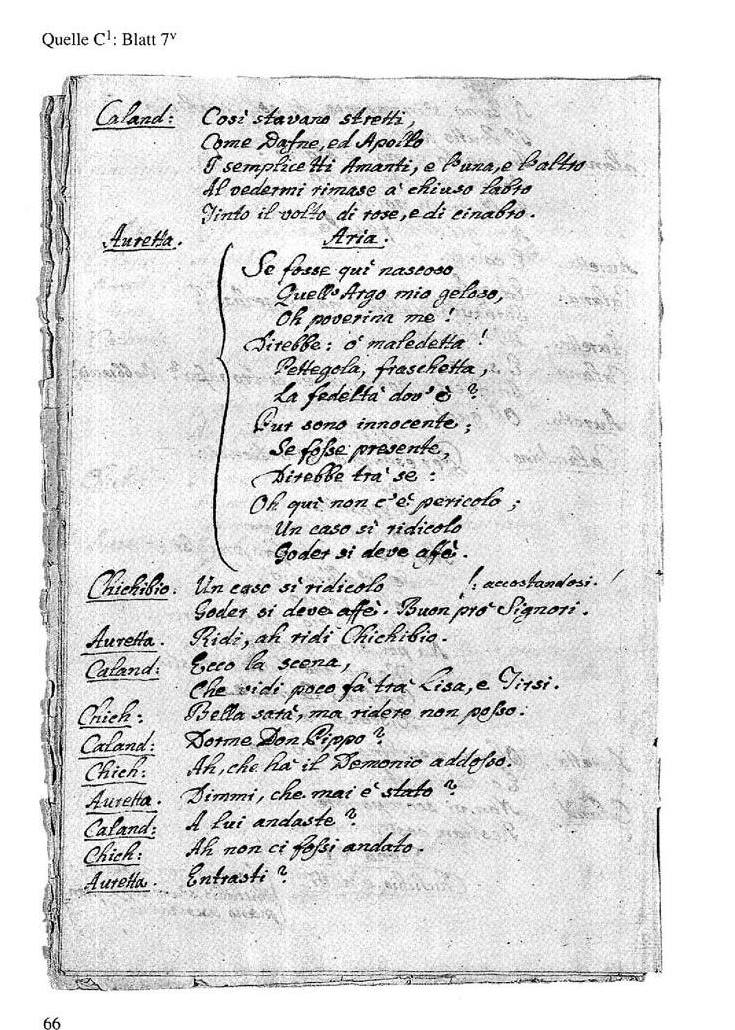 Quelle C¹: Blatt 7ᵛ
Caland: Così stavano stretti,
Come Dafne, ed Apollo
I semplicetti Amanti, e l'una, e l'altro
Al vedermi rimase à chiuso labro
Tinto il volto di rose, e di cinabro.
Auretta. Aria.
Se fosse qui nascoso
Quell'Argo mio geloso,
Oh poverina me!
Direbbe: ò maledetta!
Pettegola, fraschetta,
La fedeltà dov'è?
Pur sono innocente;
Se fosse presente,
Direbbe trà se:
Oh quì non c'è pericolo;
Un caso sì ridicolo
Goder si deve affè.
Chichibio. Un caso sì ridicolo /: accostandosi. /
Goder si deve affè. Buon prò Signori.
Auretta. Ridi, ah ridi Chichibio.
Caland: Ecco la scena,
Che vidi poco fà trà Lisa, e Tirsi.
Chich: Bella sarà, ma ridere non posso.
Caland: Dorme Don Pippo?
Chich: Ah, che hà il Demonio addosso.
Auretta. Dimmi, che mai è stato?
Caland: A lui andaste?
Chich: Ah non ci fossi andato.
Auretta. Entrasti?
66